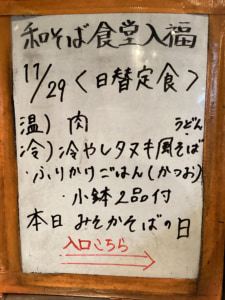 和そば食堂入福
11/29〈日替定食〉
温）肉 うどん
冷）冷やしタヌキ風そば
・ふりかけごはん(かつお)
・小鉢2品付
本日みそかそばの日
入口こちら